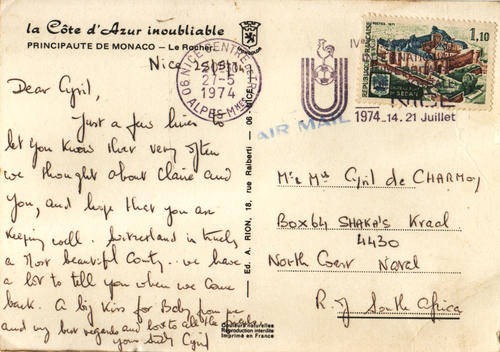 la Côte d'Azur inoubliable
PRINCIPAUTE DE MONACO – Le Rocher
Nice
Dear Cyril,
Just a few lines
let you know that very often
we thought about Claire and
you, and hope that you are
keeping well. Switzerland is truly
a most beautiful county.. we have
a lot to tell you when we come
back. A big kiss for Baby from me
and my best regards and
your Cyril
Ed. A. RION, 18, rue Raiberti — 06 NICE
Couleurs naturelles
Reproduction interdite
Imprimé en France
06 NICE CENTRE
27-5
1974
ALPES-MMES
IVe
1974_14.21 Juillet
AIR MAIL
REPUBLIQUE FRANCAISE
1,10
SEDAN
Mr & Mrs Cyril de CHARMOY
Box 64 SHAKA'S Kraal
4430
North Coast Natal
R. of South Africa